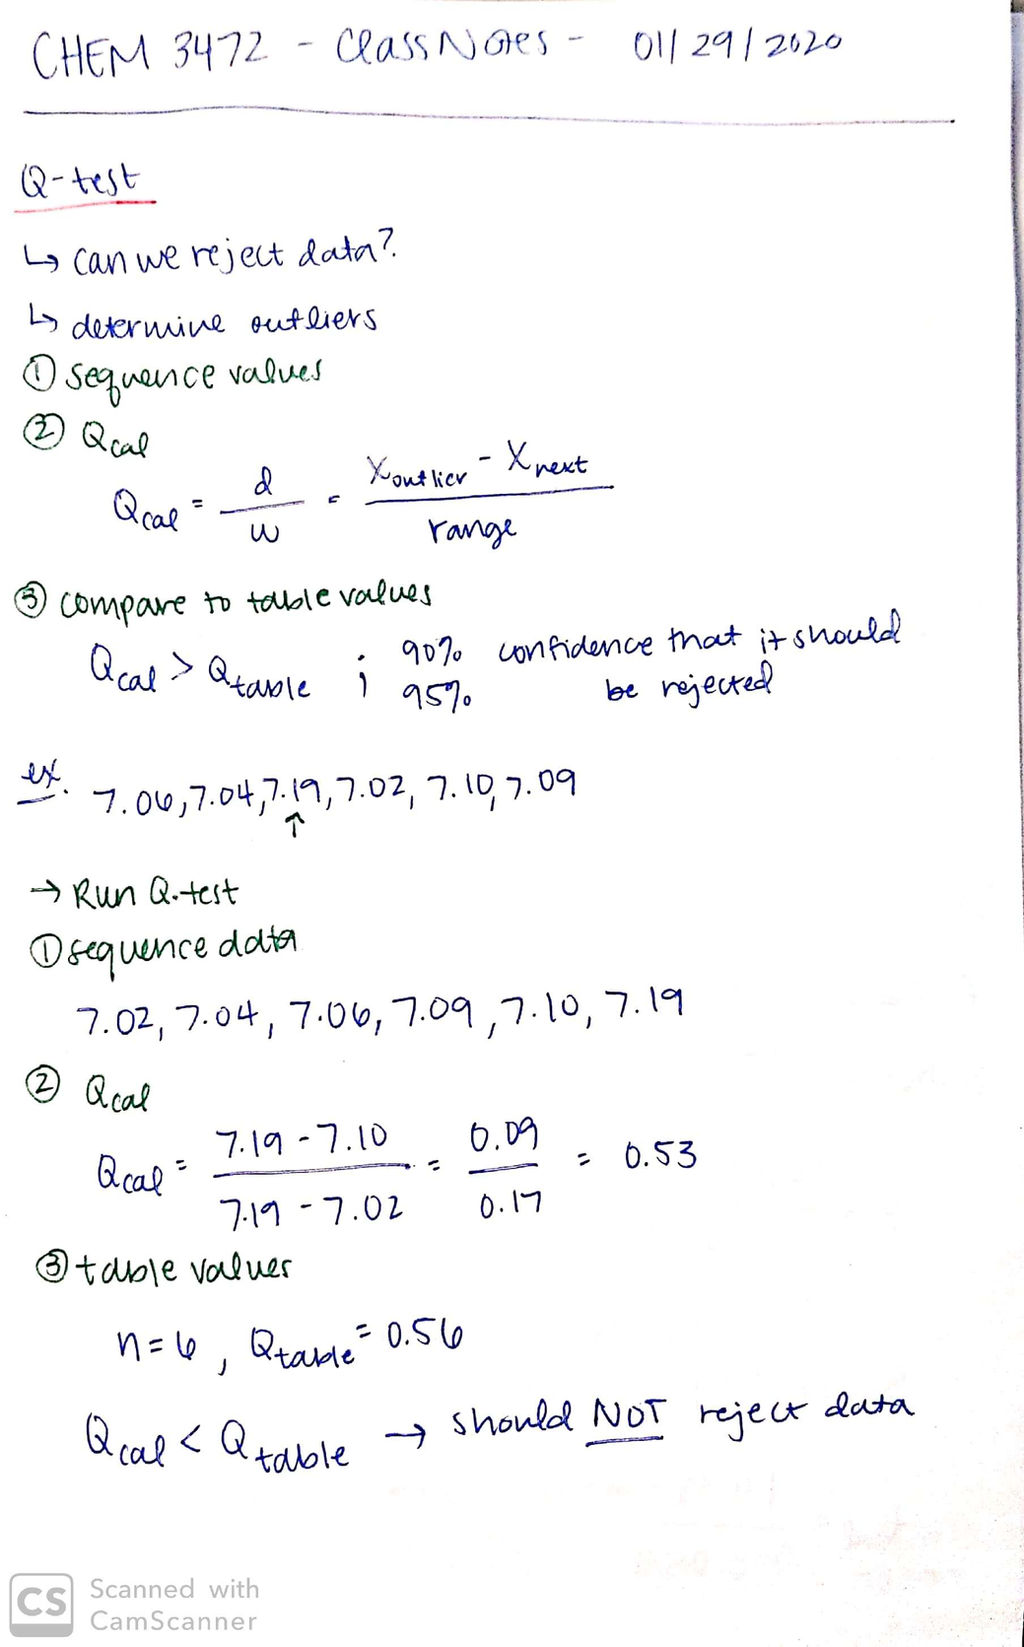 CHEM 3472 - Class Notes - 01/29/2020
Q-test
↳ can we reject data?
↳ determine outliers
① sequence values
② Qcal
Qcal = d/w = Xoutlier - Xnext / range
③ compare to table values
Qcal > Qtable ; 90% 95% confidence that it should be rejected
ex. 7.06, 7.04, 7.19, 7.02, 7.10, 7.09
↑
→ Run Q-test
① sequence data
7.02, 7.04, 7.06, 7.09, 7.10, 7.19
② Qcal
Qcal = 7.19 - 7.10 / 7.19 - 7.02 = 0.09 / 0.17 = 0.53
③ table values
n=6, Qtable = 0.56
Qcal < Qtable → should NOT reject data
CS Scanned with
CamScanner